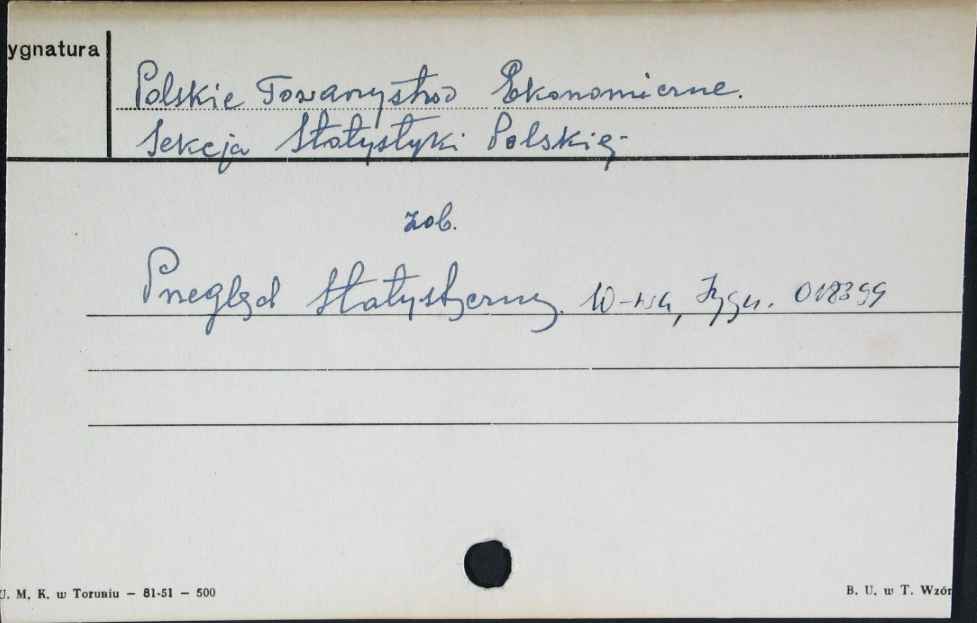 ygnatura
Polskie Towarzystwo Ekonomiczne.
Sekcja Statystyki Polskiej
zob.
Przegląd Statystyczny. W-wa, Sygn. 018399
U. M. K. w Toruniu — 81-51 — 500
B. U. w T. Wzór